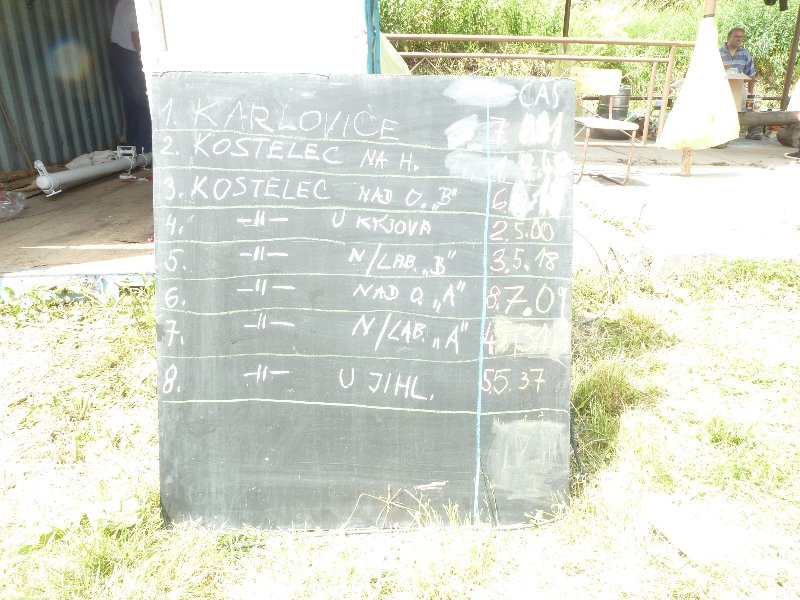 ČAS
1. KARLOVICE 7
2. KOSTELEC NA H. 1
3. KOSTELEC NAD O. „B" 6
4. -II- U KYJOVA 2. 5.00
5. -II- N/LAB. „B" 3. 5.18
6. -II- NAD O. „A" 8. 7.09
7. -II- N/LAB. „A" 4.
8. -II- U JIHL. 5. 5.37